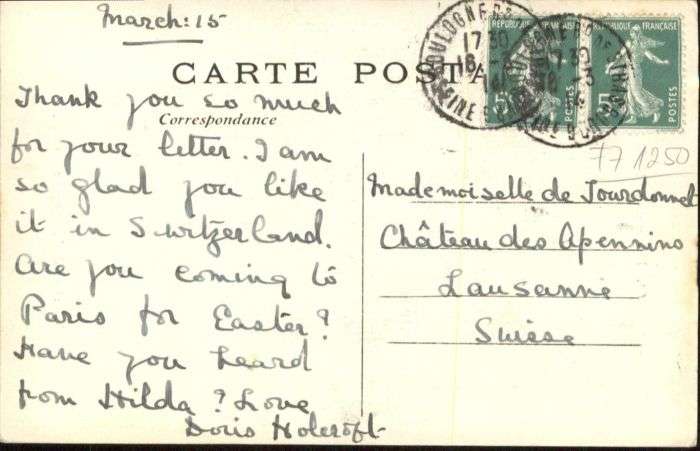 March: 15
CARTE POSTA
Correspondance
Thank you so much
for your letter. I am
so glad you like
it in Switzerland.
Are you coming to
Paris for Easter?
Have you heard
from Hilda? Love
Doris Holcroft
RÉPUBLIQUE FRANÇAISE
POSTES
RÉPUBLIQUE FRANÇAISE
5
POSTES
BOULOGNE
17 30
18
SEINE
17 30
771250
Mademoiselle de Jourdonnet
Château des Apennins
Lausanne
Suisse